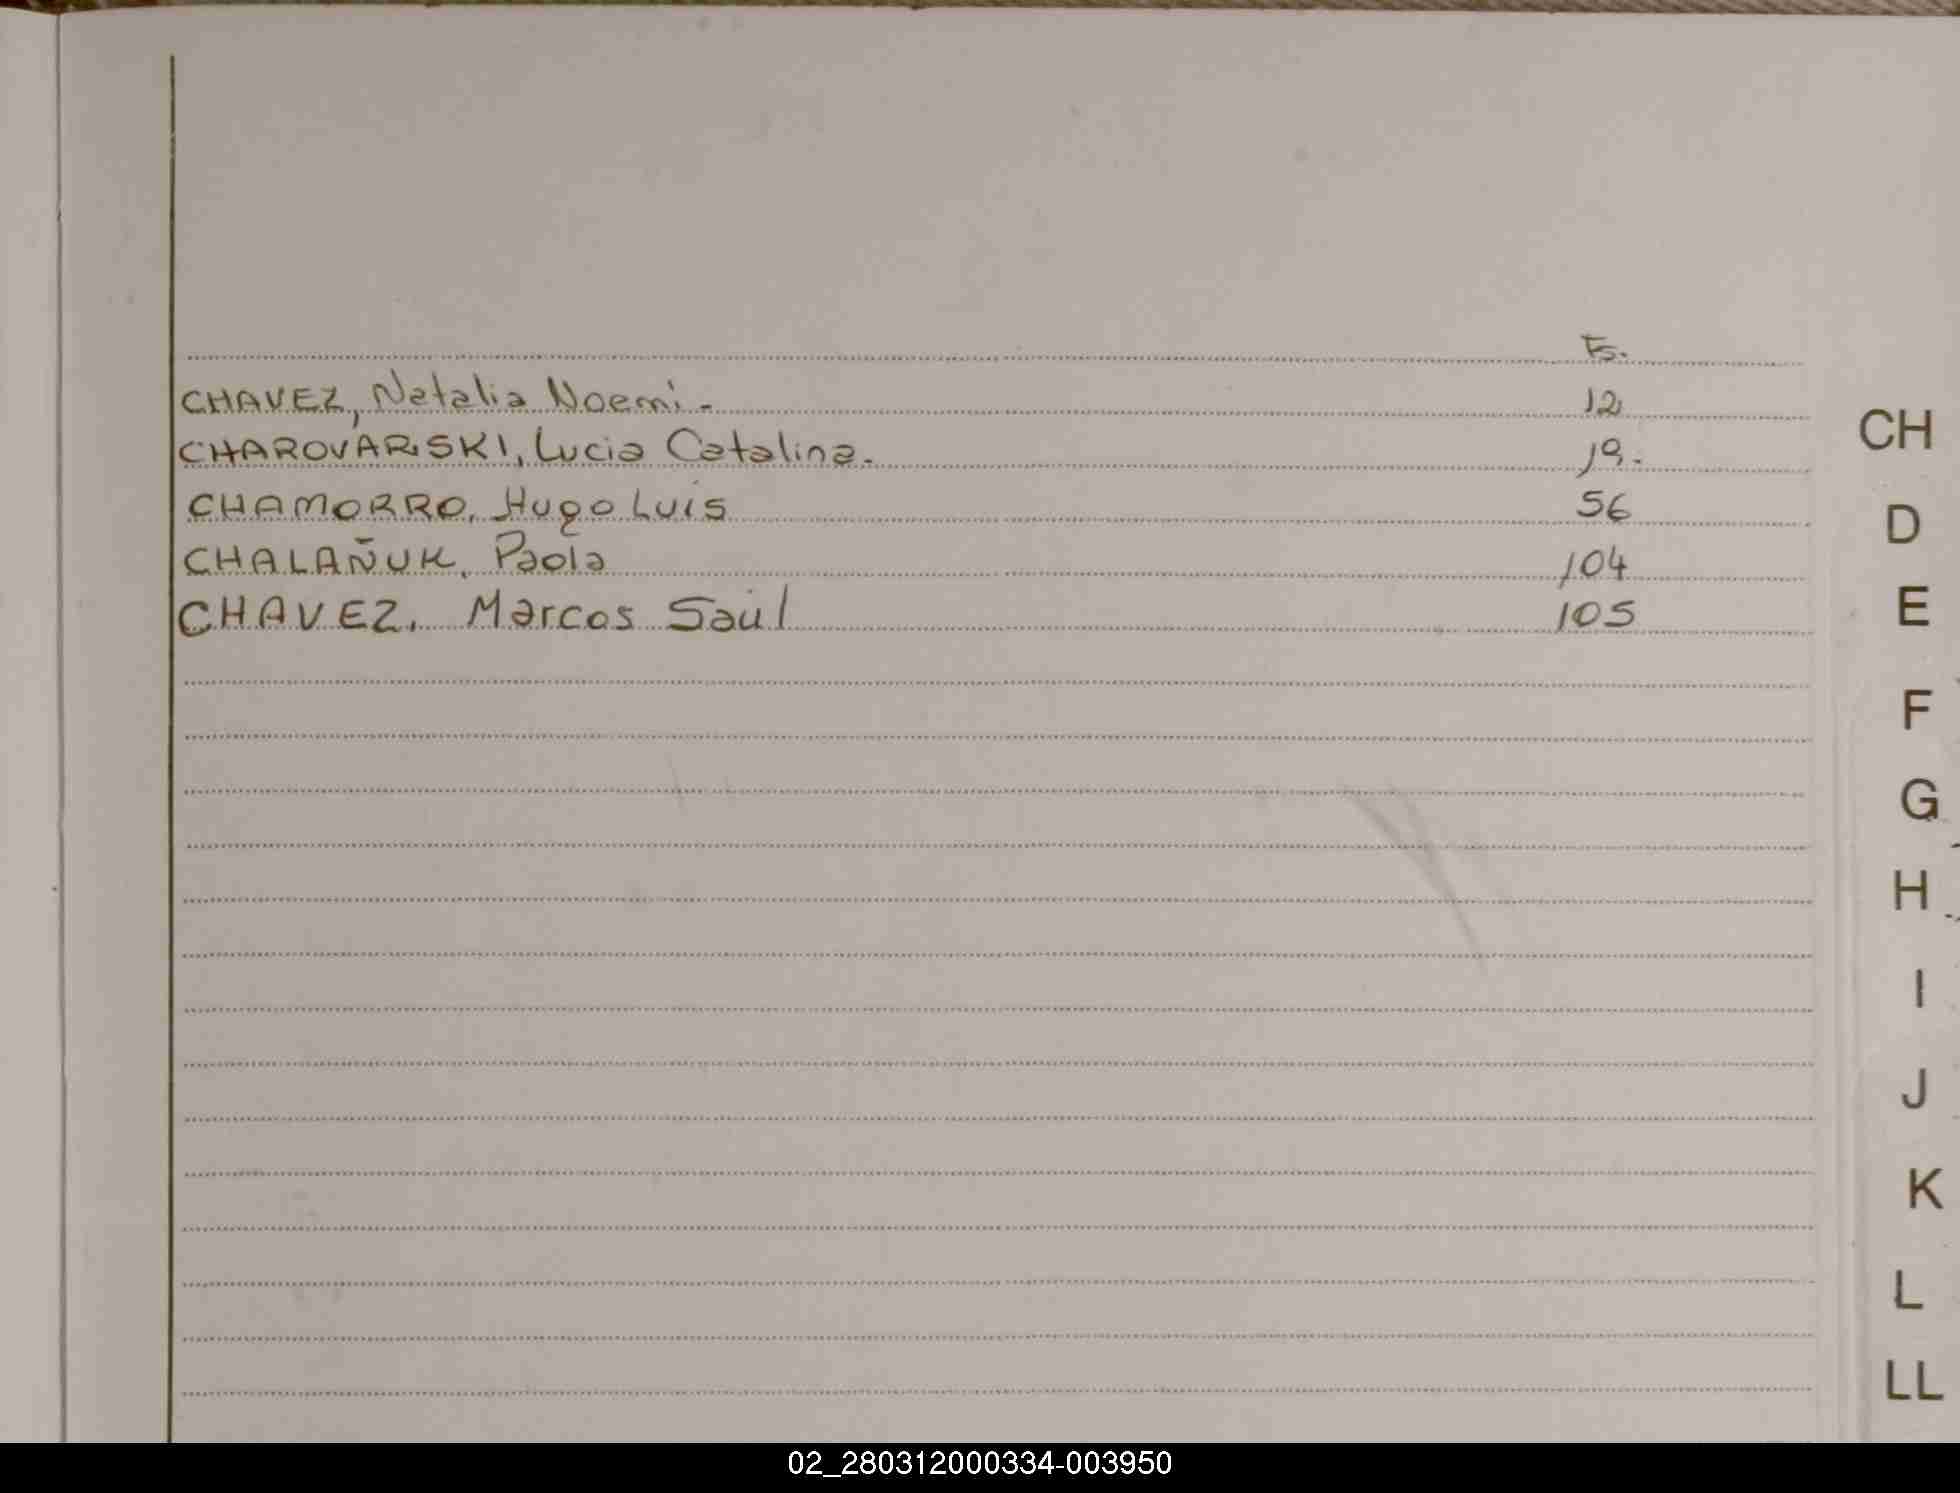 Fs.
CHAVEZ, Natalia Noemi.- 12
CHAROVARSKI, Lucia Catalina.- 19.
CHAMORRO, Hugo Luis 56
CHALAÑUK, Paola 104
CHAVEZ, Marcos Saúl 105
CH
D
E
F
G
H
I
J
K
L
LL
02_280312000334-003950